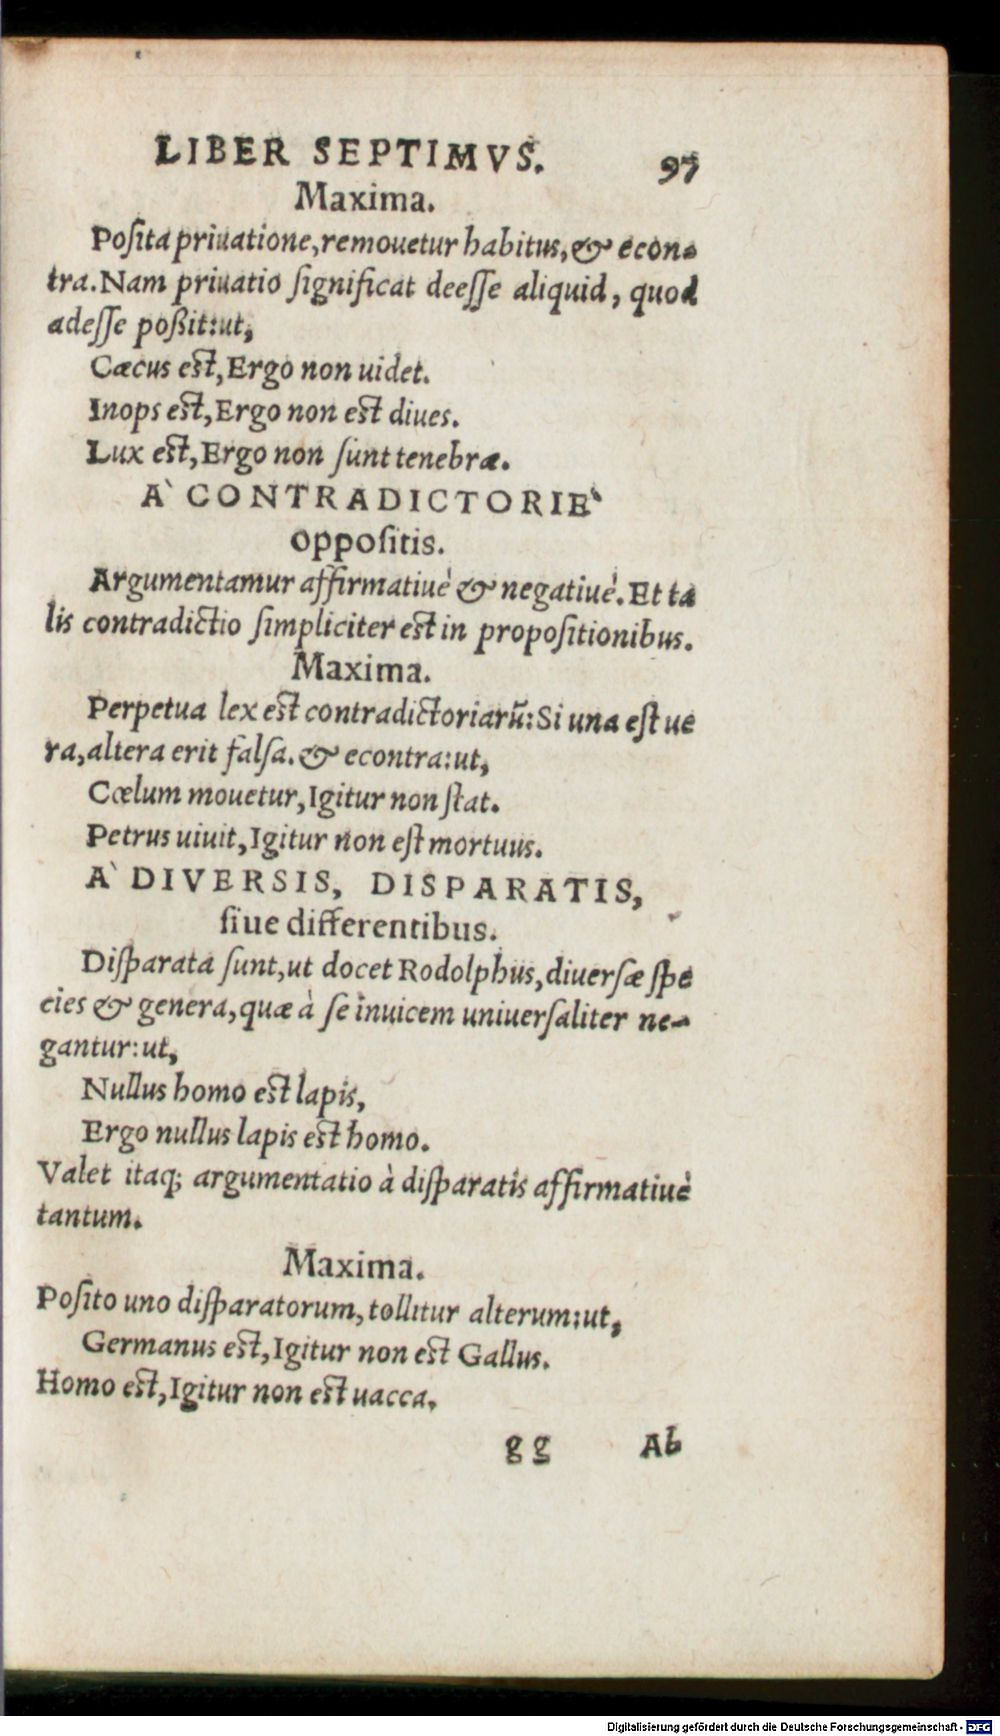 LIBER SEPTIMVS. 97
Maxima.
Posita priuatione, remouetur habitus, & econ-
tra. Nam priuatio significat deesse aliquid, quod
adesse poßit: ut,
Cæcus est, Ergo non uidet.
Inops est, Ergo non est diues.
Lux est, Ergo non sunt tenebræ.
A` CONTRADICTORIE`
oppositis.
Argumentamur affirmatiuè & negatiuè. Et ta
lis contradictio simpliciter est in propositionibus.
Maxima.
Perpetua lex est contradictoriarũ: Si una est ue
ra, altera erit falsa. & econtra: ut,
Cœlum mouetur, Igitur non stat.
Petrus uiuit, Igitur non est mortuus.
A` DIVERSIS, DISPARATIS,
siue differentibus.
Disparata sunt, ut docet Rodolphus, diuersæ spe
cies & genera, quæ à se inuicem uniuersaliter ne-
gantur: ut,
Nullus homo est lapis,
Ergo nullus lapis est homo.
Valet itaq; argumentatio à disparatis affirmatiuè
tantum.
Maxima.
Posito uno disparatorum, tollitur alterum: ut,
Germanus est, Igitur non est Gallus.
Homo est, Igitur non est uacca.
gg Ab
Digitalisierung gefördert durch die Deutsche Forschungsgemeinschaft - DFG